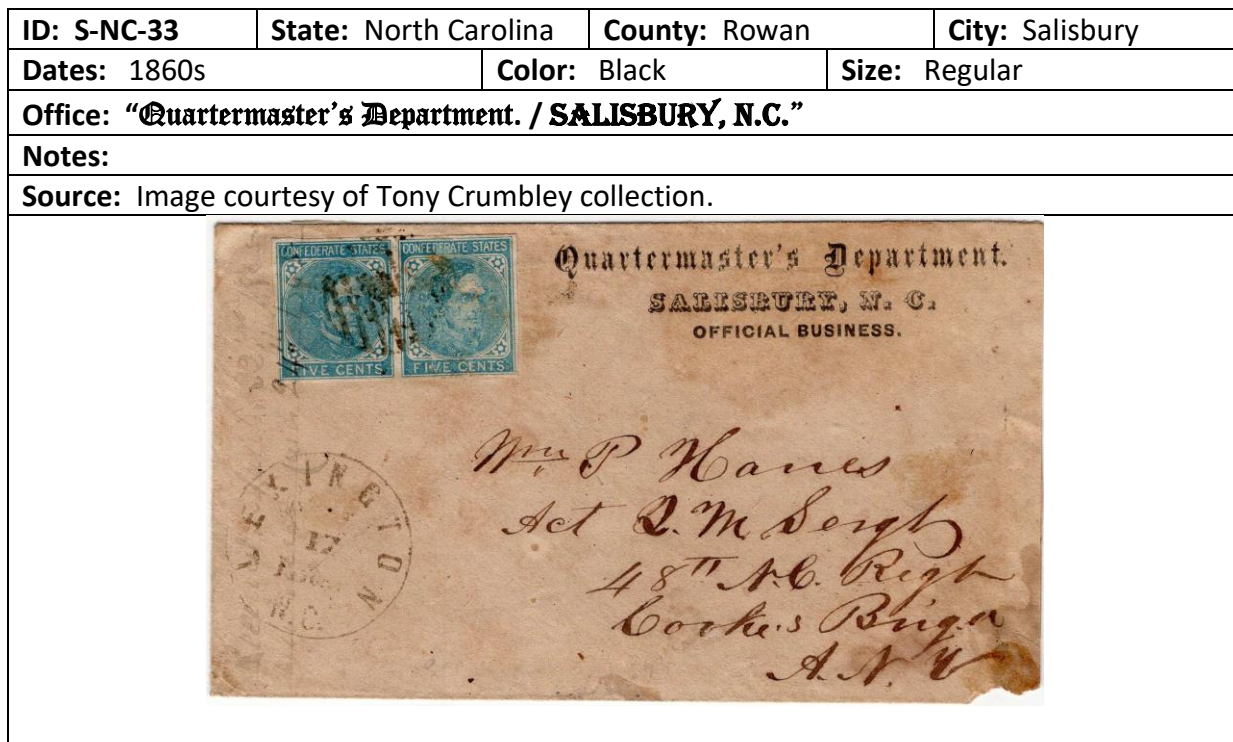 ID: S-NC-33 State: North Carolina County: Rowan City: Salisbury
Dates: 1860s Color: Black Size: Regular
Office: “Quartermaster’s Department. / SALISBURY, N.C.”
Notes:
Source: Image courtesy of Tony Crumbley collection.
CONFEDERATE STATES CONFEDERATE STATES
FIVE CENTS FIVE CENTS
Quartermaster's Department.
SALISBURY, N. C.
OFFICIAL BUSINESS.
Wm P Hanes
Act Q. M Sergt
48th N.C. Regt
Cooke's Briga
A. N. V
LEXINGTON
17
N.C.